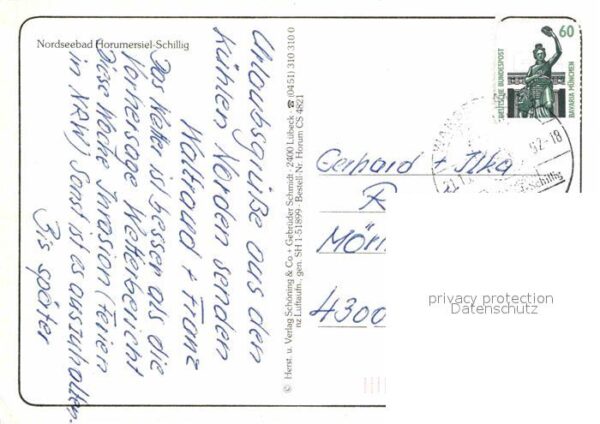 Nordseebad Horumersiel-Schillig
Urlaubsgrüße aus den
kühlen Norden senden
Waltraud + Franz
Das Wetter ist besser als die
Vorhersage Wetterbericht
Diese Woche Invasion (Ferien
in NRW) Sonst ist es auszuhalten.
Bis später
© Herst. u. Verlag Schöning & Co + Gebrüder Schmidt 2400 Lübeck ☎ (04 51) 310 310 0
nz Luftaufn., gen. SH 1-51899 · Bestell-Nr. Horum CS 4821
60
DEUTSCHE BUNDESPOST
BAVARIA MÜNCHEN
92-18
Schillig
Gerhard + Ilka
4300
privacy protection
Datenschutz